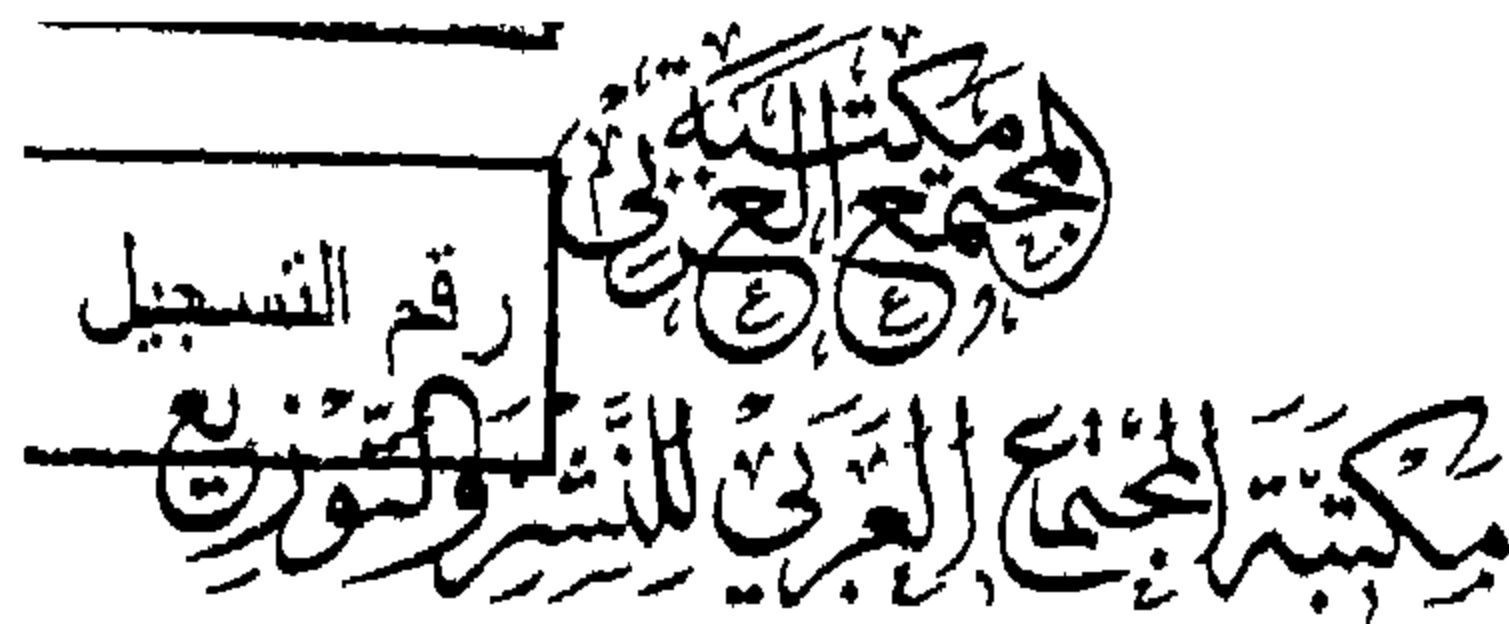 مكتبة
المجتمع العربي
رقم التسجيل
مكتبة المجتمع العربي للنشر والتوزيع